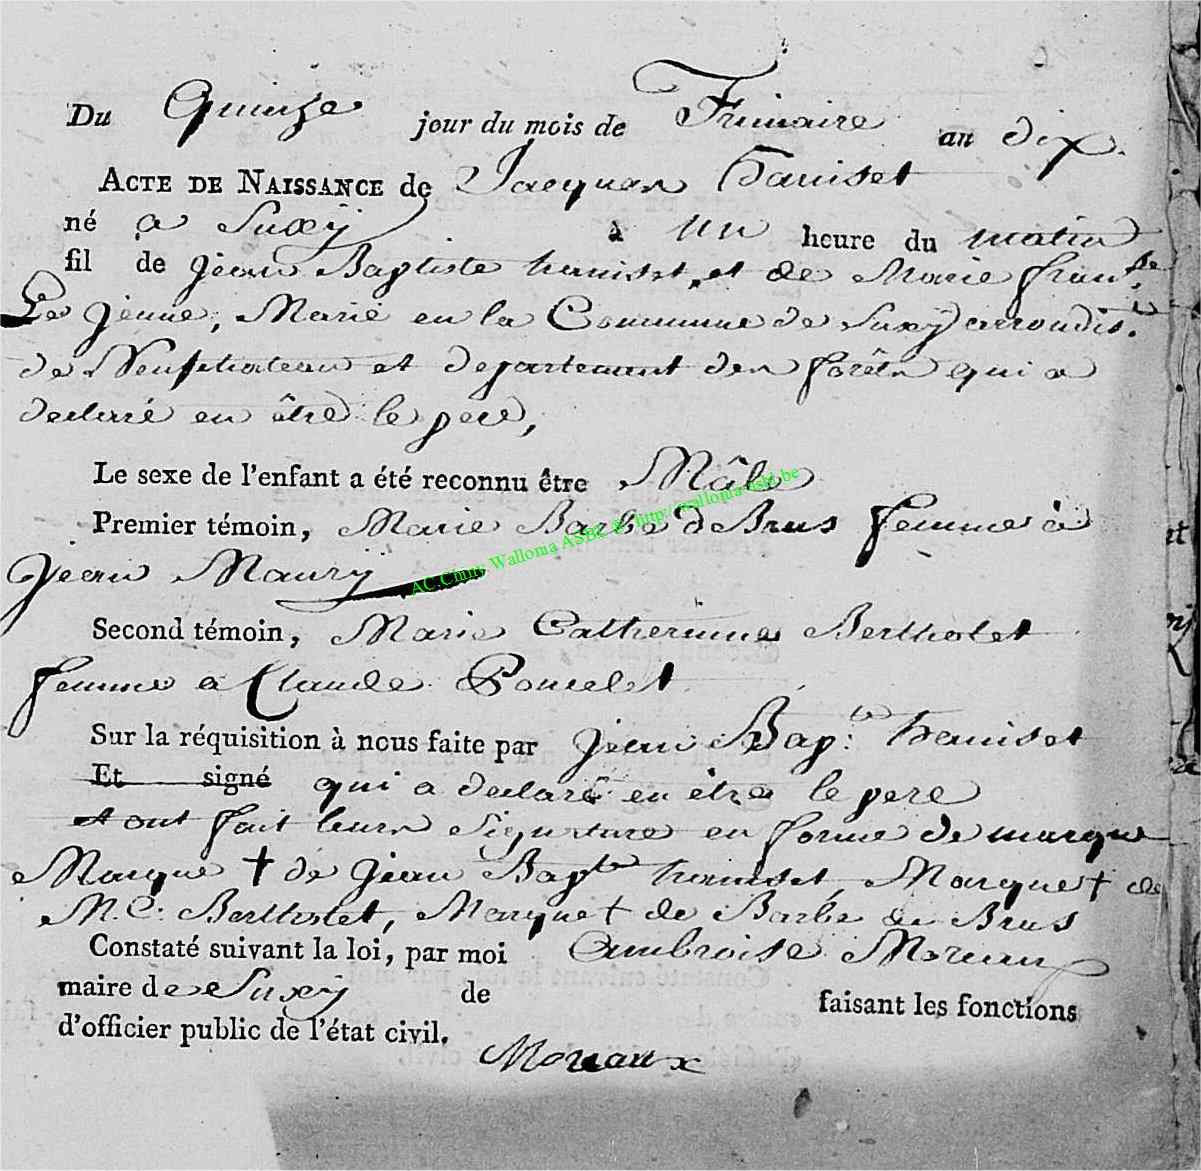 Du Quinze jour du mois de Frimaire an dix.
ACTE DE NAISSANCE de Jacques haniset
né a Suxÿ à un heure du matin
fil de jean Baptiste haniset, et de Marie fran.se
Le jeune, Marié en la Commune de Suxÿ arrondis.t
de Neufchateau et departement des forêts qui a
declaré en être le pere,
Le sexe de l'enfant a été reconnu être Mâle
Premier témoin, Marie Barbe de Brus femme à
Jean Maury
AC Chiny Wallonia ASBL © http://wallonia-asbl.be
Second témoin, Marie Catherinne Bertholet
femme a Claude Poncelet
Sur la réquisition à nous faite par jean Bap:te haniset
Et signé qui a declaré en être le pere
et ont fait leurs Signature en forme de marque
Marque † de Jean Bapte haniset, Marque † de
M. C. Bertholet, Marque † de Barbe de Brus
Constaté suivant la loi, par moi Ambroise Moreaux
maire de Suxÿ de faisant les fonctions
d'officier public de l'état civil.
Moreaux